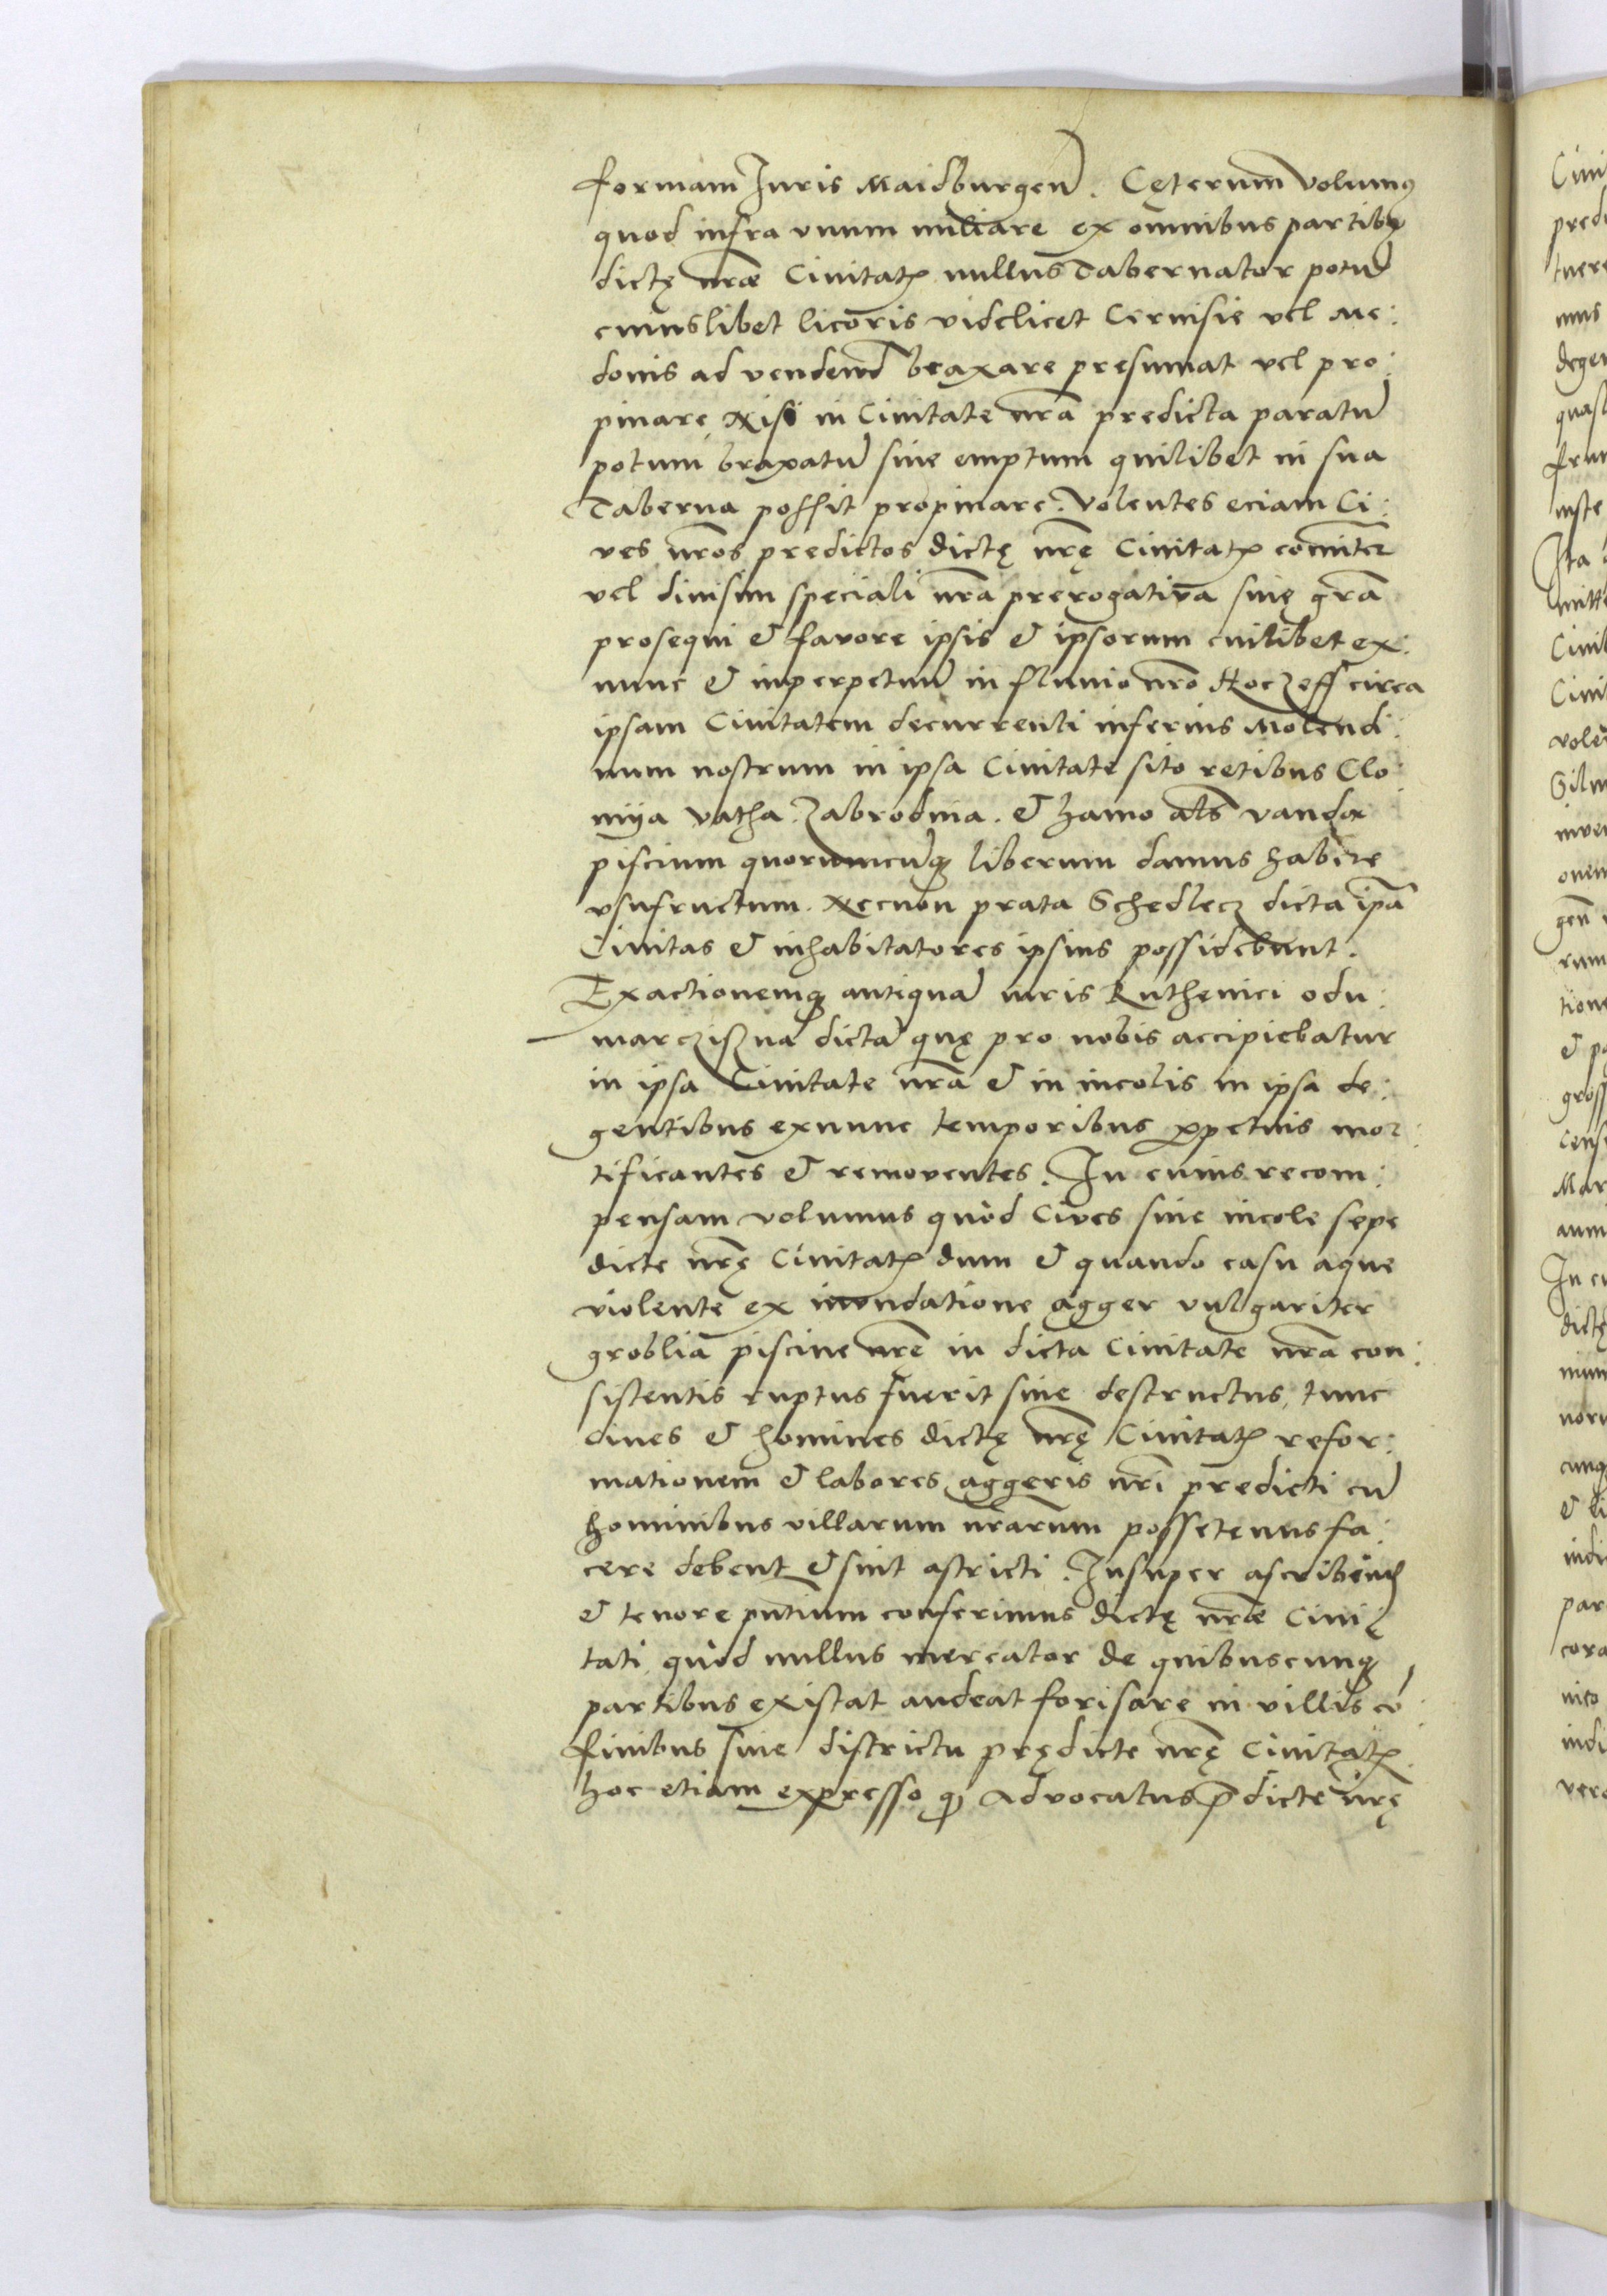 formam Juris Maidburgen̄. Cęterum̄ volumꝰ
quod infra vnum miliare ex omnibus partibꝰ
dictę nr̄æ Ciuitatꝭ nullus Tabernator potū
cuiuslibet licoris videlicet Ceruisie vel Me:
donis ad vendend̄ braxare presumat vel pro:
pinare, Nisi in Ciuitate nr̄a predicta paratū
potum braxatū siue emptum quilibet in sua
Taberna possit propinare. Volentes eciam Ci:
ues nr̄os predictos dictę nr̄ę Ciuitatꝭ com̄iter
vel diuisim speciali nr̄a prerogatiua siue gr̄a
prosequi & favore ipsis & ipsorum cuilibet ex:
nunc & inperpetuū in fluuio nr̄o Roczeff circa
ipsam Ciuitatem decurrenti inferius Molendi:
num nostrum in ipsa Ciuitate sito retibus Clo:
miya vatha. Zabrodnia. & hamo al̄s vanda
piscium quorumcūqꝫ liberum damus habere
vsufructum. Necnon prata Schedlecz dicta ip̄a
Ciuitas & inhabitatores ipsius possidebunt.
Exactionemqꝫ antiquā iuris Ruthenici odu:
marcziszna dictā quę pro nobis accipiebatur
in ipsa Ciuitate nr̄a & in incolis in ipsa de:
gentibus exnunc temporibus ꝑpetuis mor:
tificantes & removentes. In cuius recom:
pensam volumus quòd Cives siue incole sepe
dicte nr̄ę Ciuitatꝭ dum & quando casu aque
violente ex inundatione agger vulgariter
grobliā piscine nr̄e in dicta Ciuitate nr̄a con:
sistentis ruptus fuerit siue destructus, tunc
ciues & homines dictę nr̄ę Ciuitatꝭ refor:
mationem & labores aggeris nr̄i predicti cū
hominibus villarum nr̄arum possetenus fa:
cere debent & sint astricti. Insuper ascribend̄
& tenore pn̄tium conferimus dictę nr̄æ Ciui:
tati, quòd nullus mercator de quibuscunqꝫ
partibus existat audeat forisare in villis cō:
finibus siue districtu prędicte nr̄ę Ciuitatꝭ.
hoc etiam expresso ꝙ Advocatus p̄dicte nr̄ę